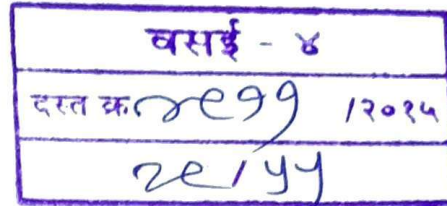 वसई - ४
दस्त क्र. ४९११ /२०१५
२९/५५